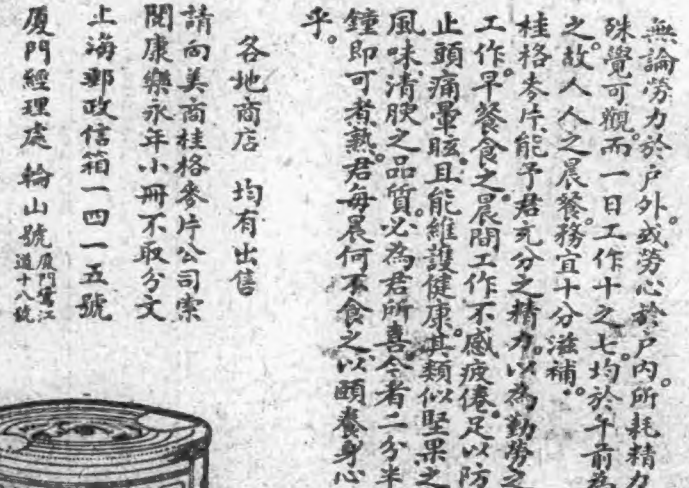 無論勞力於戶外。或勞心於戶內。所耗精力
殊覺可觀。而一日工作十之七。均於午前為
之。故人人之晨餐。務宜十分滋補。
桂格麥片。能予君充分之精力。以為勤勞之
工作。早餐食之。晨間工作不感疲倦。足以防
止頭痛暈眩。且能維護健康。其類似堅果之
風味。清腴之品質。必為君所喜。今者二分半
鐘即可煮熟。君每晨何不食之。以頤養身心
乎。
各地商店 均有出售
請向美商桂格麥片公司索
閱康樂永年小冊不取分文
上海郵政信箱一四一五號
廈門經理處 輪山號 廈門鷺江
道十八號